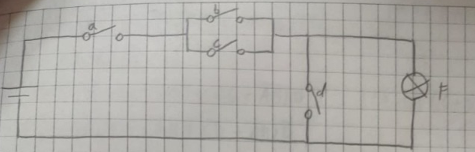 a
b
c
d
F